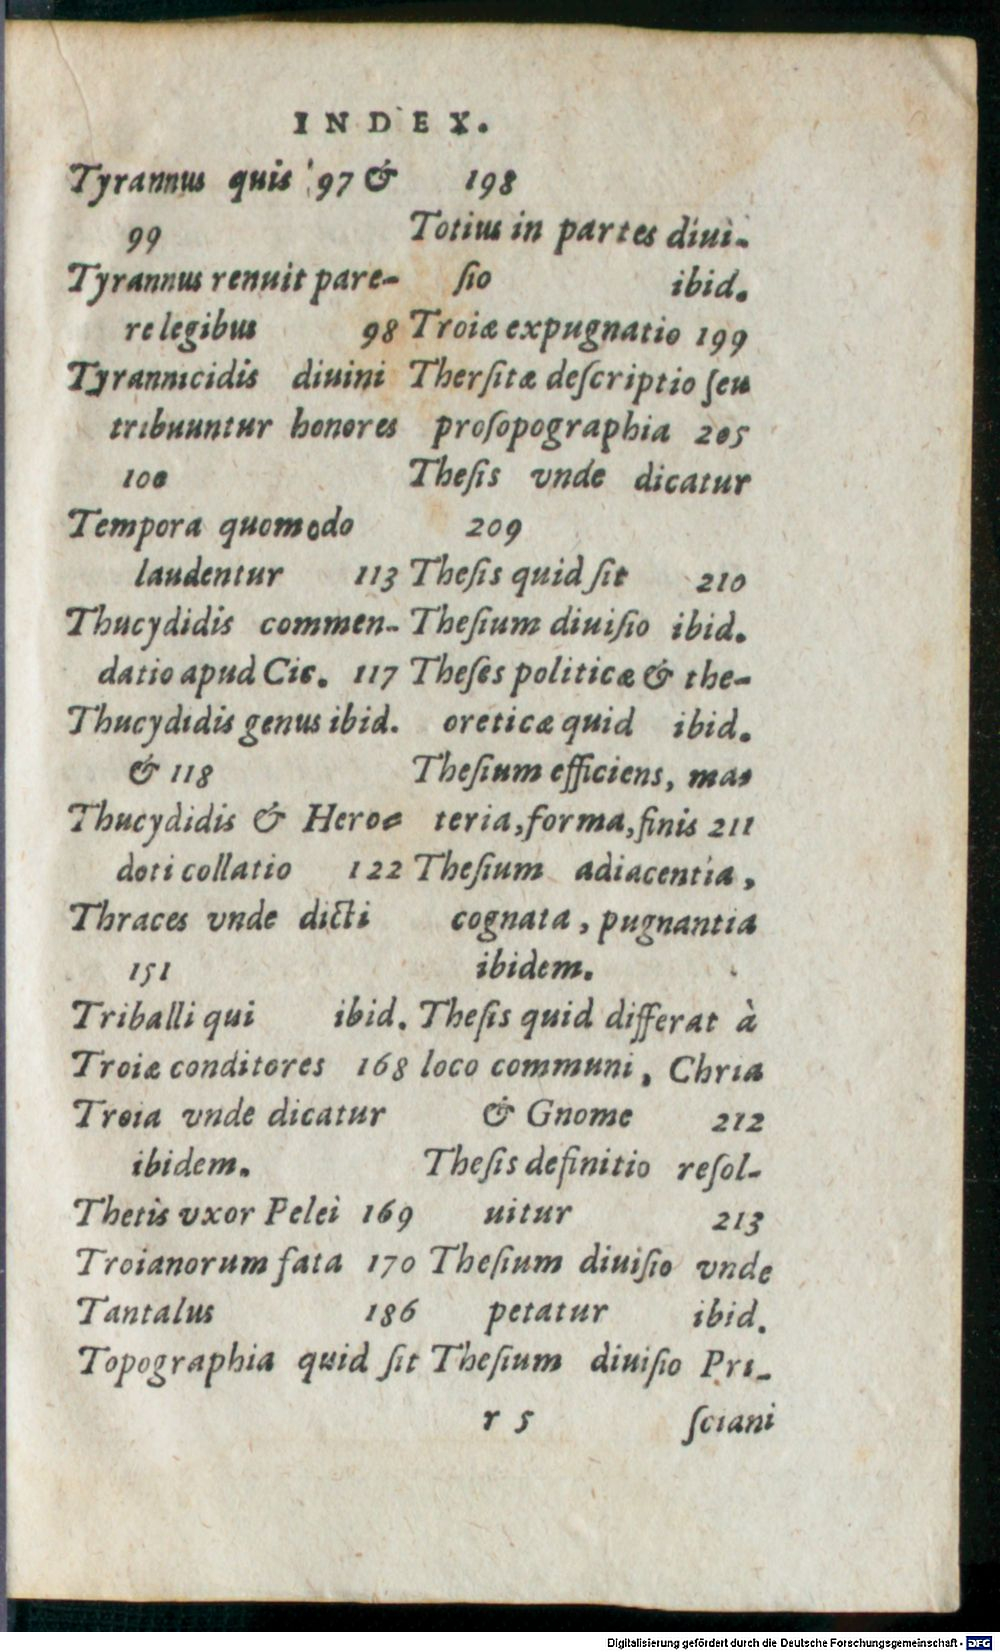 INDEX.
Tyrannus quis 97 &
99
Tyrannus renuit pare-
re legibus 98
Tyrannicidis diuini
tribuuntur honores
100
Tempora quomodo
laudentur 113
Thucydidis commen-
datio apud Cic. 117
Thucydidis genus ibid.
& 118
Thucydidis & Hero-
doti collatio 122
Thraces vnde dicti
151
Triballi qui ibid.
Troiæ conditores 168
Troia vnde dicatur
ibidem.
Thetis vxor Pelei 169
Troianorum fata 170
Tantalus 186
Topographia quid ſit
198
Totius in partes diui-
ſio ibid.
Troiæ expugnatio 199
Therſitæ deſcriptio ſeu
proſopographia 205
Theſis vnde dicatur
209
Theſis quid ſit 210
Theſium diuiſio ibid.
Theſes politicæ & the-
oreticæ quid ibid.
Theſium efficiens, ma-
teria, forma, finis 211
Theſium adiacentia,
cognata, pugnantia
ibidem.
Theſis quid differat à
loco communi, Chria
& Gnome 212
Theſis definitio reſol-
uitur 213
Theſium diuiſio vnde
petatur ibid.
Theſium diuiſio Pri-
r 5 ſciani
Digitalisierung gefördert durch die Deutsche Forschungsgemeinschaft - DFG